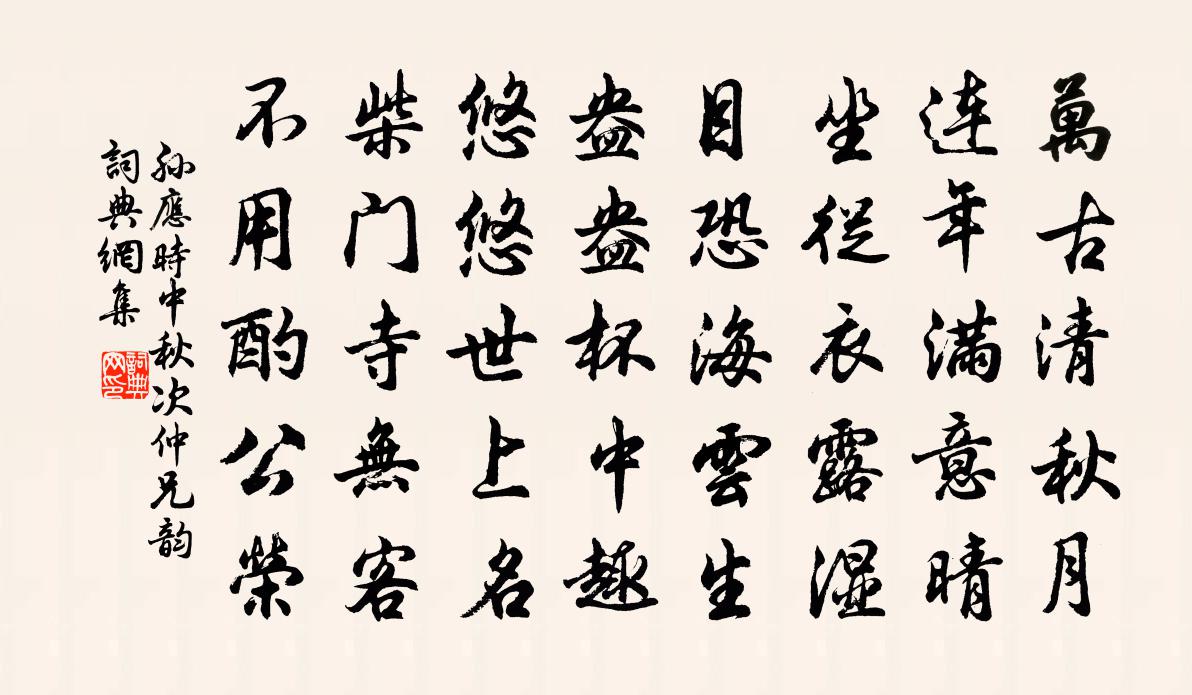 萬古清秋月
連年滿意晴
坐從衣露濕
目恐海雲生
盎盎杯中趣
悠悠世上名
柴門寺無客
不用酌公榮
孫應時中秋次仲兄韵
詞典網集
詞典网印